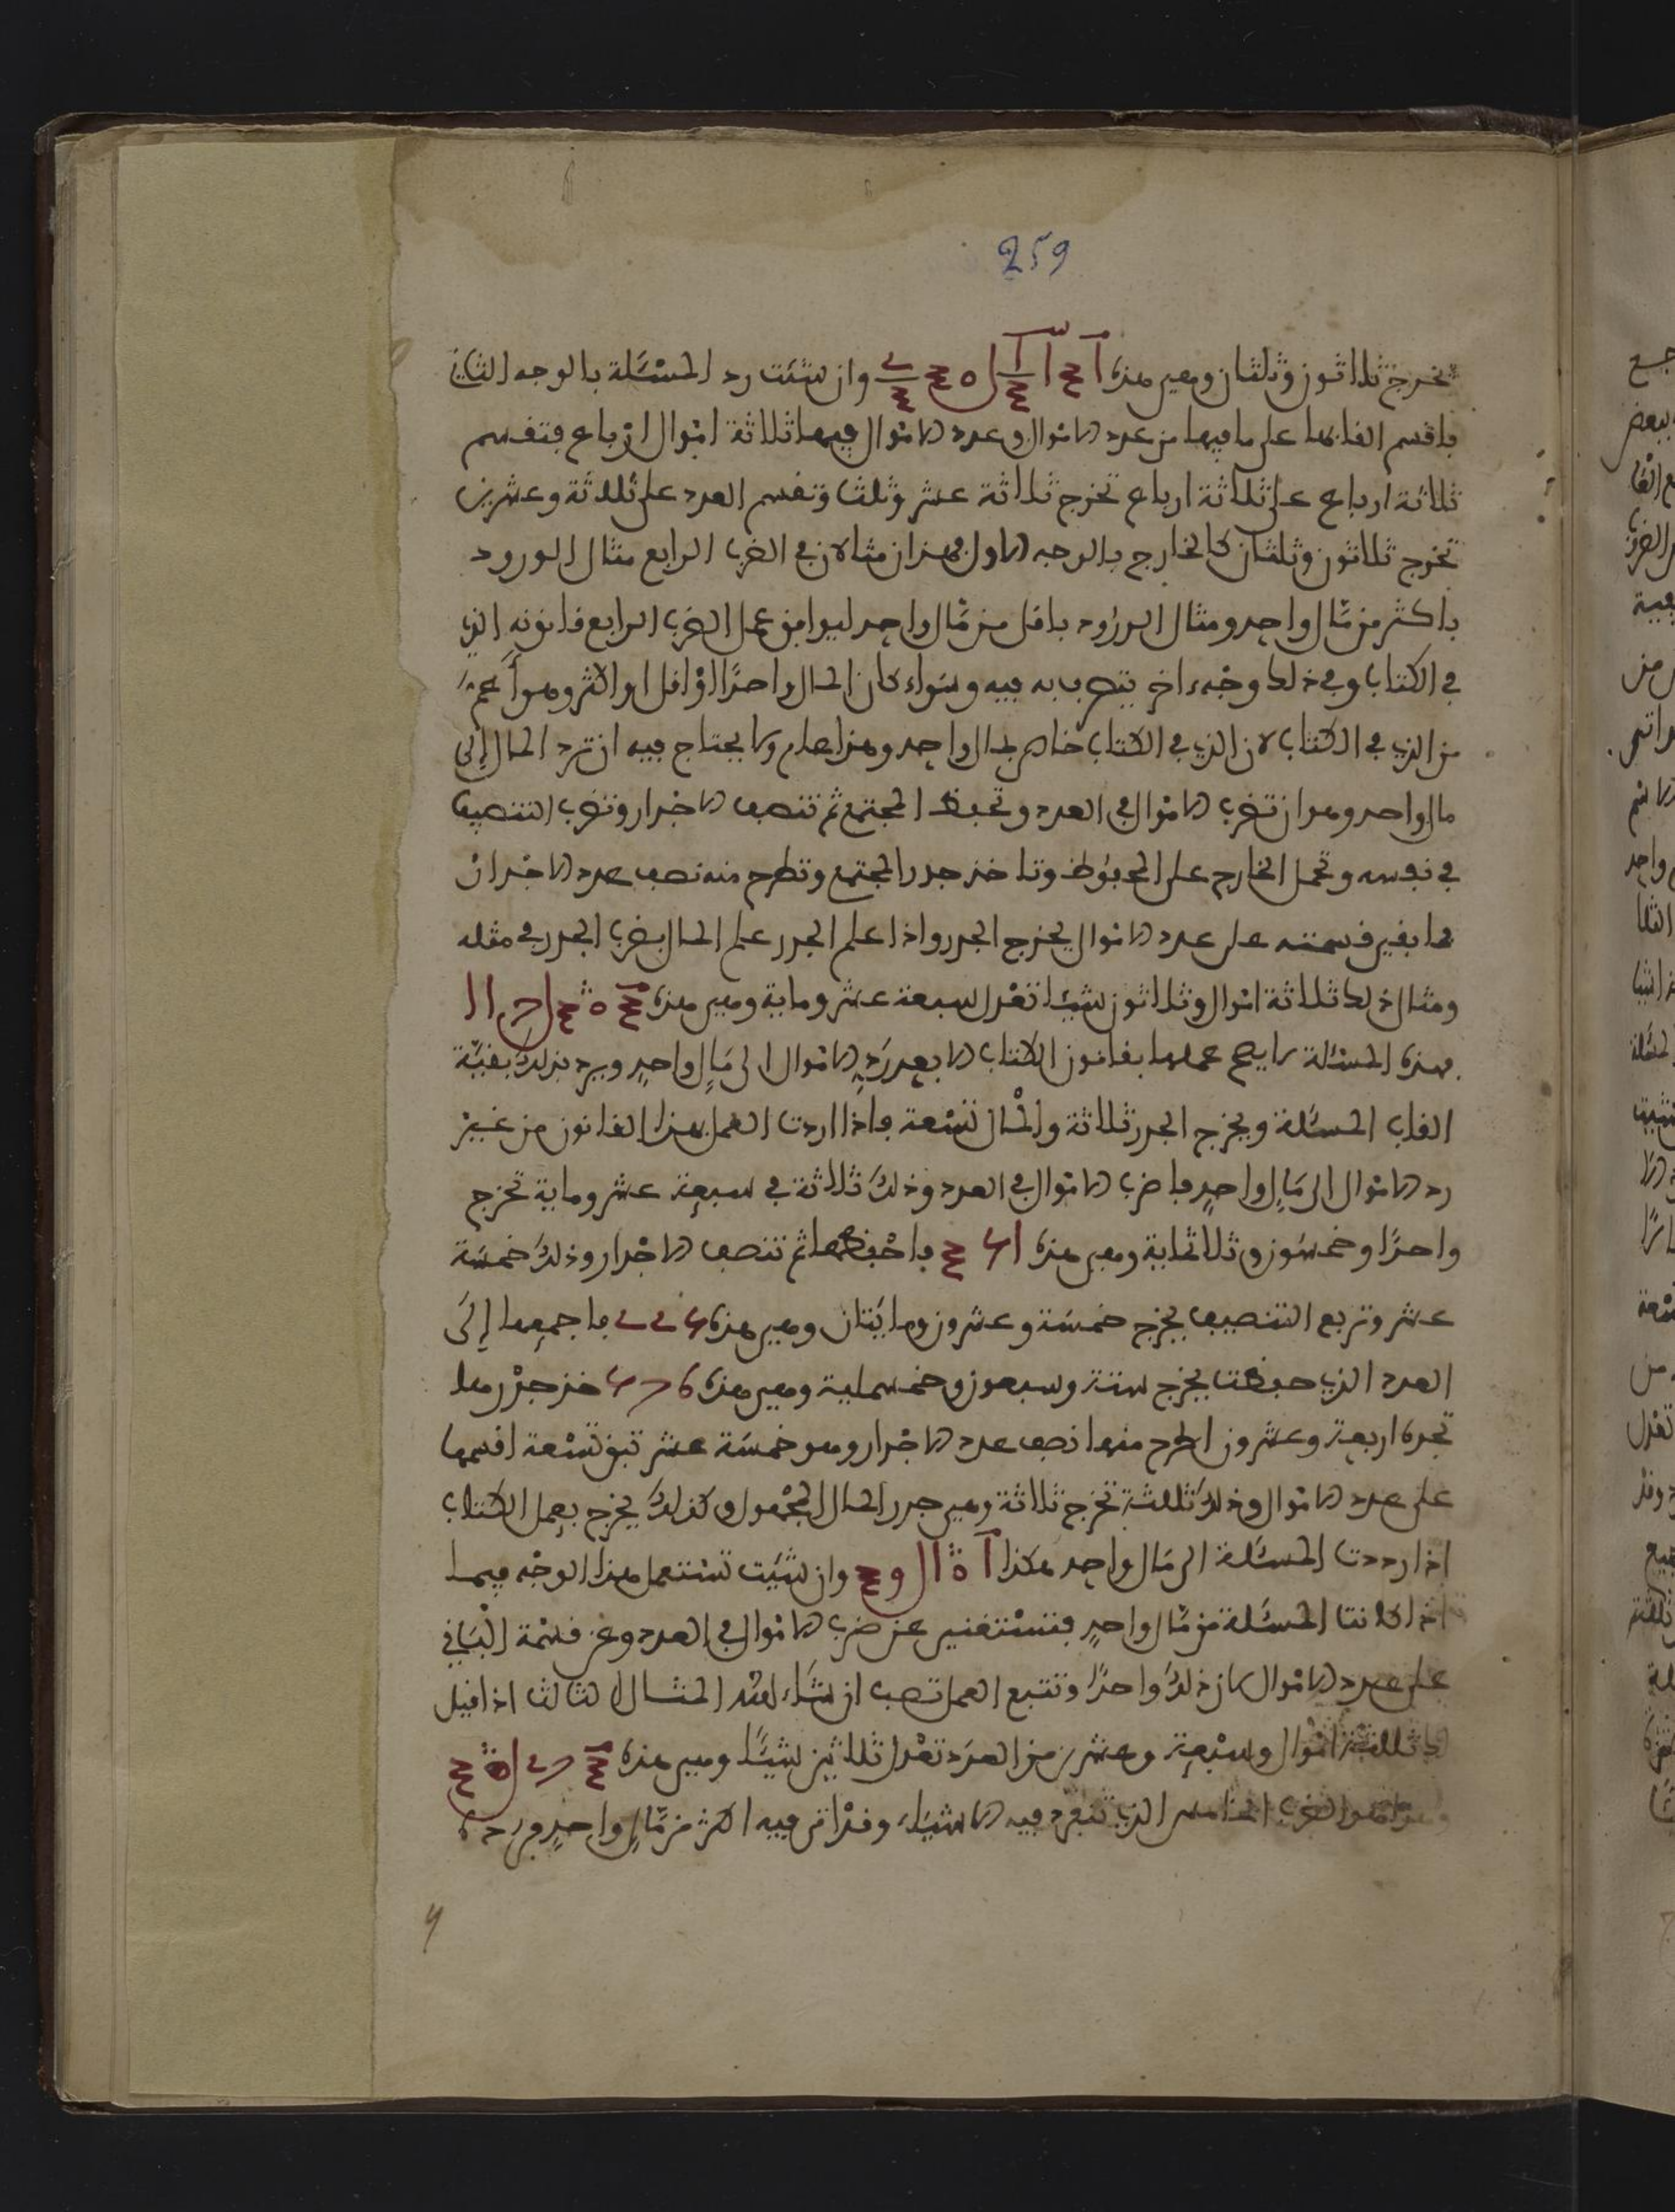 259
تخرج ثلاثون وثلثان وهي هذه وإن شئت رد المسئلة بالوجه الثاني
فاقسم ألقابها على ما فيها من عدد الاموال وعدد الاموال فيها ثلاثة اموال ارباع فتقسم
ثلاثة ارباع على ثلاثة ارباع تخرج ثلاثة عشر وثلث وتقسم العدد على ثلاثة وعشرين
تخرج ثلاثون وثلثان كالخارج بالوجه الاول فهذان مثالان في الضرب الرابع مثال الورود
باكثر من مال واحد ومثال الورود باقل من مال واحد ليوافق عمل الضرب الرابع قانونه الذي
في الكتاب وفي ذلك وجه اخر يتصرف به فيه وسواء كان المال واحدًا او اقل او اكثر وهو أعم
من الذي في الكتاب لان الذي في الكتاب خاص بمال واحد وهذا عام ولا يحتاج فيه ان ترد المال إلى
مال واحد وهو ان تضرب الاموال في العدد وتحفظ المجتمع ثم تنصف الاجذار وتضرب التنصيف
في نفسه وتحمل الخارج على المحفوظ وتاخذ جذر المجتمع وتطرح منه نصف عدد الاجذار
فما بقي قسمته على عدد الاموال يخرج الجذر واذا علم الجذر علم المال بضرب الجذر في مثله
ومثال ذلك ثلاثة اموال وثلاثون شيئا تعدل سبعة عشر وماية وهي هذه
فهذه المسئلة لا يصح عملها بقانون الكتاب الا بعد رد الاموال الى مال واحد ويرد بذلك بقية
القاب المسئلة ويخرج الجذر ثلاثة والمال تسعة فاذا اردت العمل بهذا القانون من غير
رد الاموال الى مال واحد فاضرب الاموال في العدد وذلك ثلاثة في سبعة عشر وماية تخرج
واحدًا وخمسون وثلاثماية وهي هذه فاحفظها ثم تنصف الاجذار وذلك خمسة
عشر وتربع التنصيف يخرج خمسة وعشرون ومايتان وهي هذه فاجمعها إلى
العدد الذي حفظت يخرج ستة وسبعون وخمسماية وهي هذه خذ جذرها
تجده اربعة وعشرون اطرح منها نصف عدد الاجذار وهو خمسة عشر تبق تسعة اقسمها
على عدد الاموال وذلك ثلثة تخرج ثلاثة وهي جذر المال المجهول وكذلك يخرج بعمل الكتاب
اذا رددت المسئلة الى مال واحد هكذا وان شئت تستعمل هذا الوجه فيما
اذا كانت المسئلة من مال واحد فتستغني عن ضرب الاموال في العدد وعن قسمة الباقي
على عدد الاموال كان ذلك واحدًا وتتبع العمل تصب ان شاء لله المثال الثالث اذا قيل
ثلاثة اموال وسبعة وعشرين من العدد تعدل ثلاثين شيئًا وهي هذه
الضرب الخامس الذي تنفرد فيه الاشياء وقد اتى فيه اكثر من مال واحد فرده